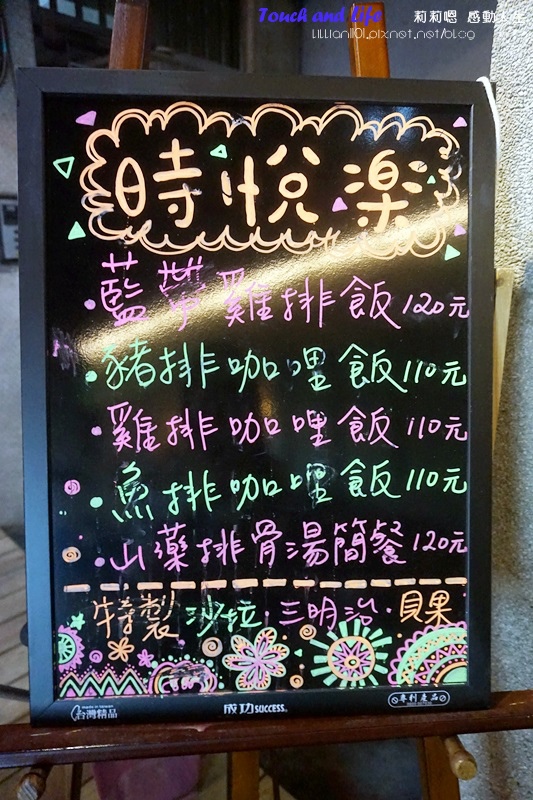 Touch and Life 莉莉嗯 感動生活
LiLLian1101.pixnet.net/blog
時悅楽
·藍帶雞排飯120元
·豬排咖哩飯110元
·雞排咖哩飯110元
·魚排咖哩飯110元
·山藥排骨湯簡餐120元
特製 沙拉·三明治·貝果
Made in Taiwan
台灣精品
成功SUCCESS
專利產品